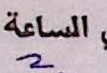 ي الساعة
2